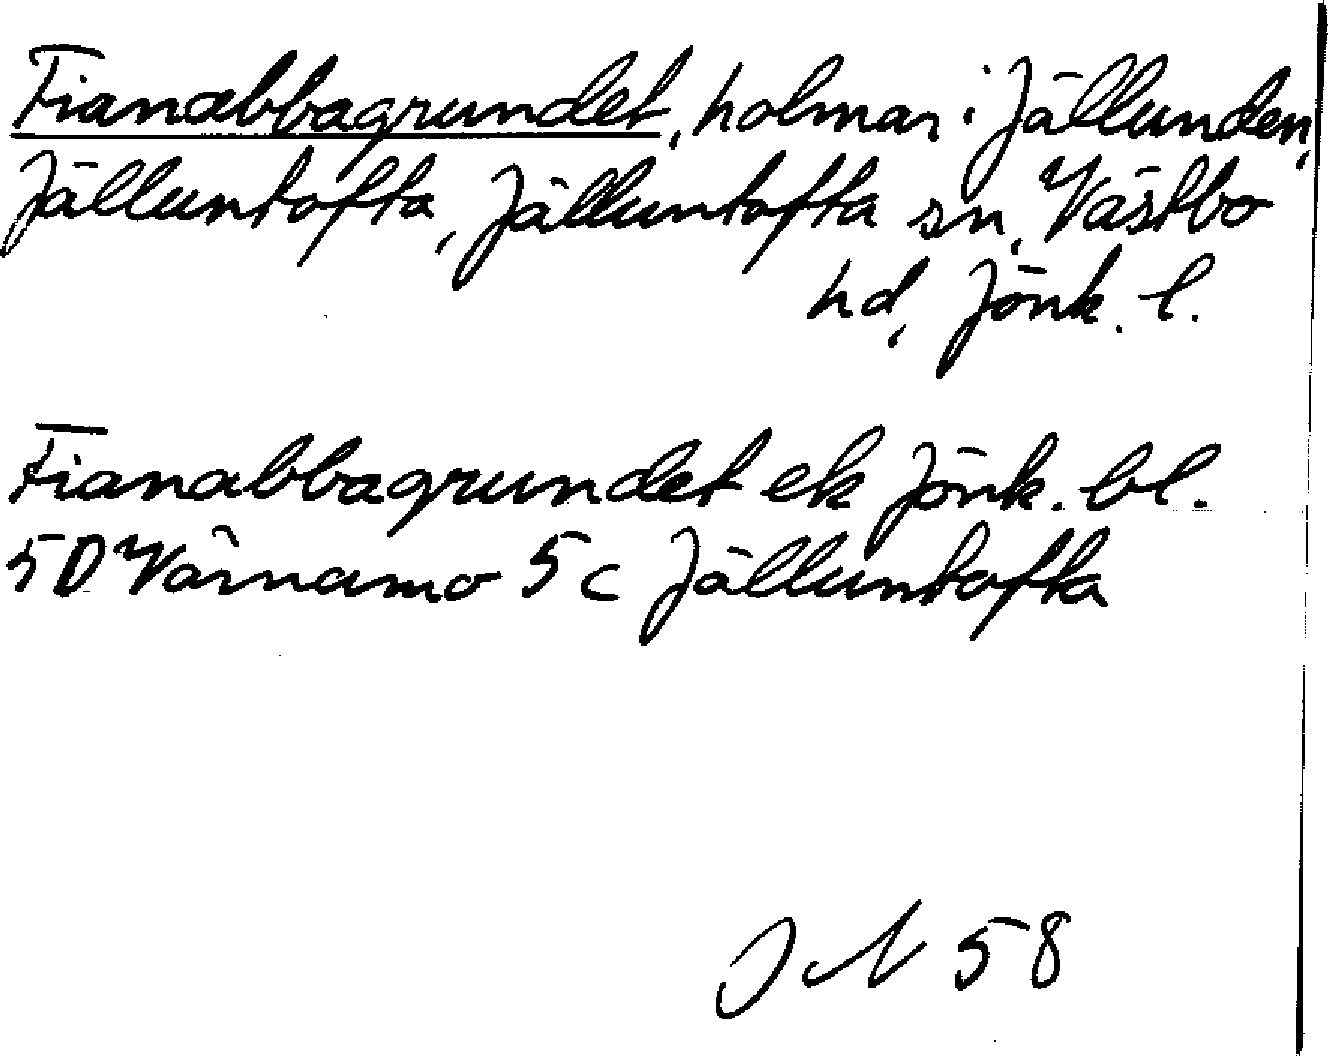 Fianabbagrundet, holmar i Jällunden,
Jälluntofta, Jälluntofta sn, Västbo
hd, Jönk. l.
Fianabbagrundet ek Jönk. bl.
5D Värnamo 5c Jälluntofta
JN 58